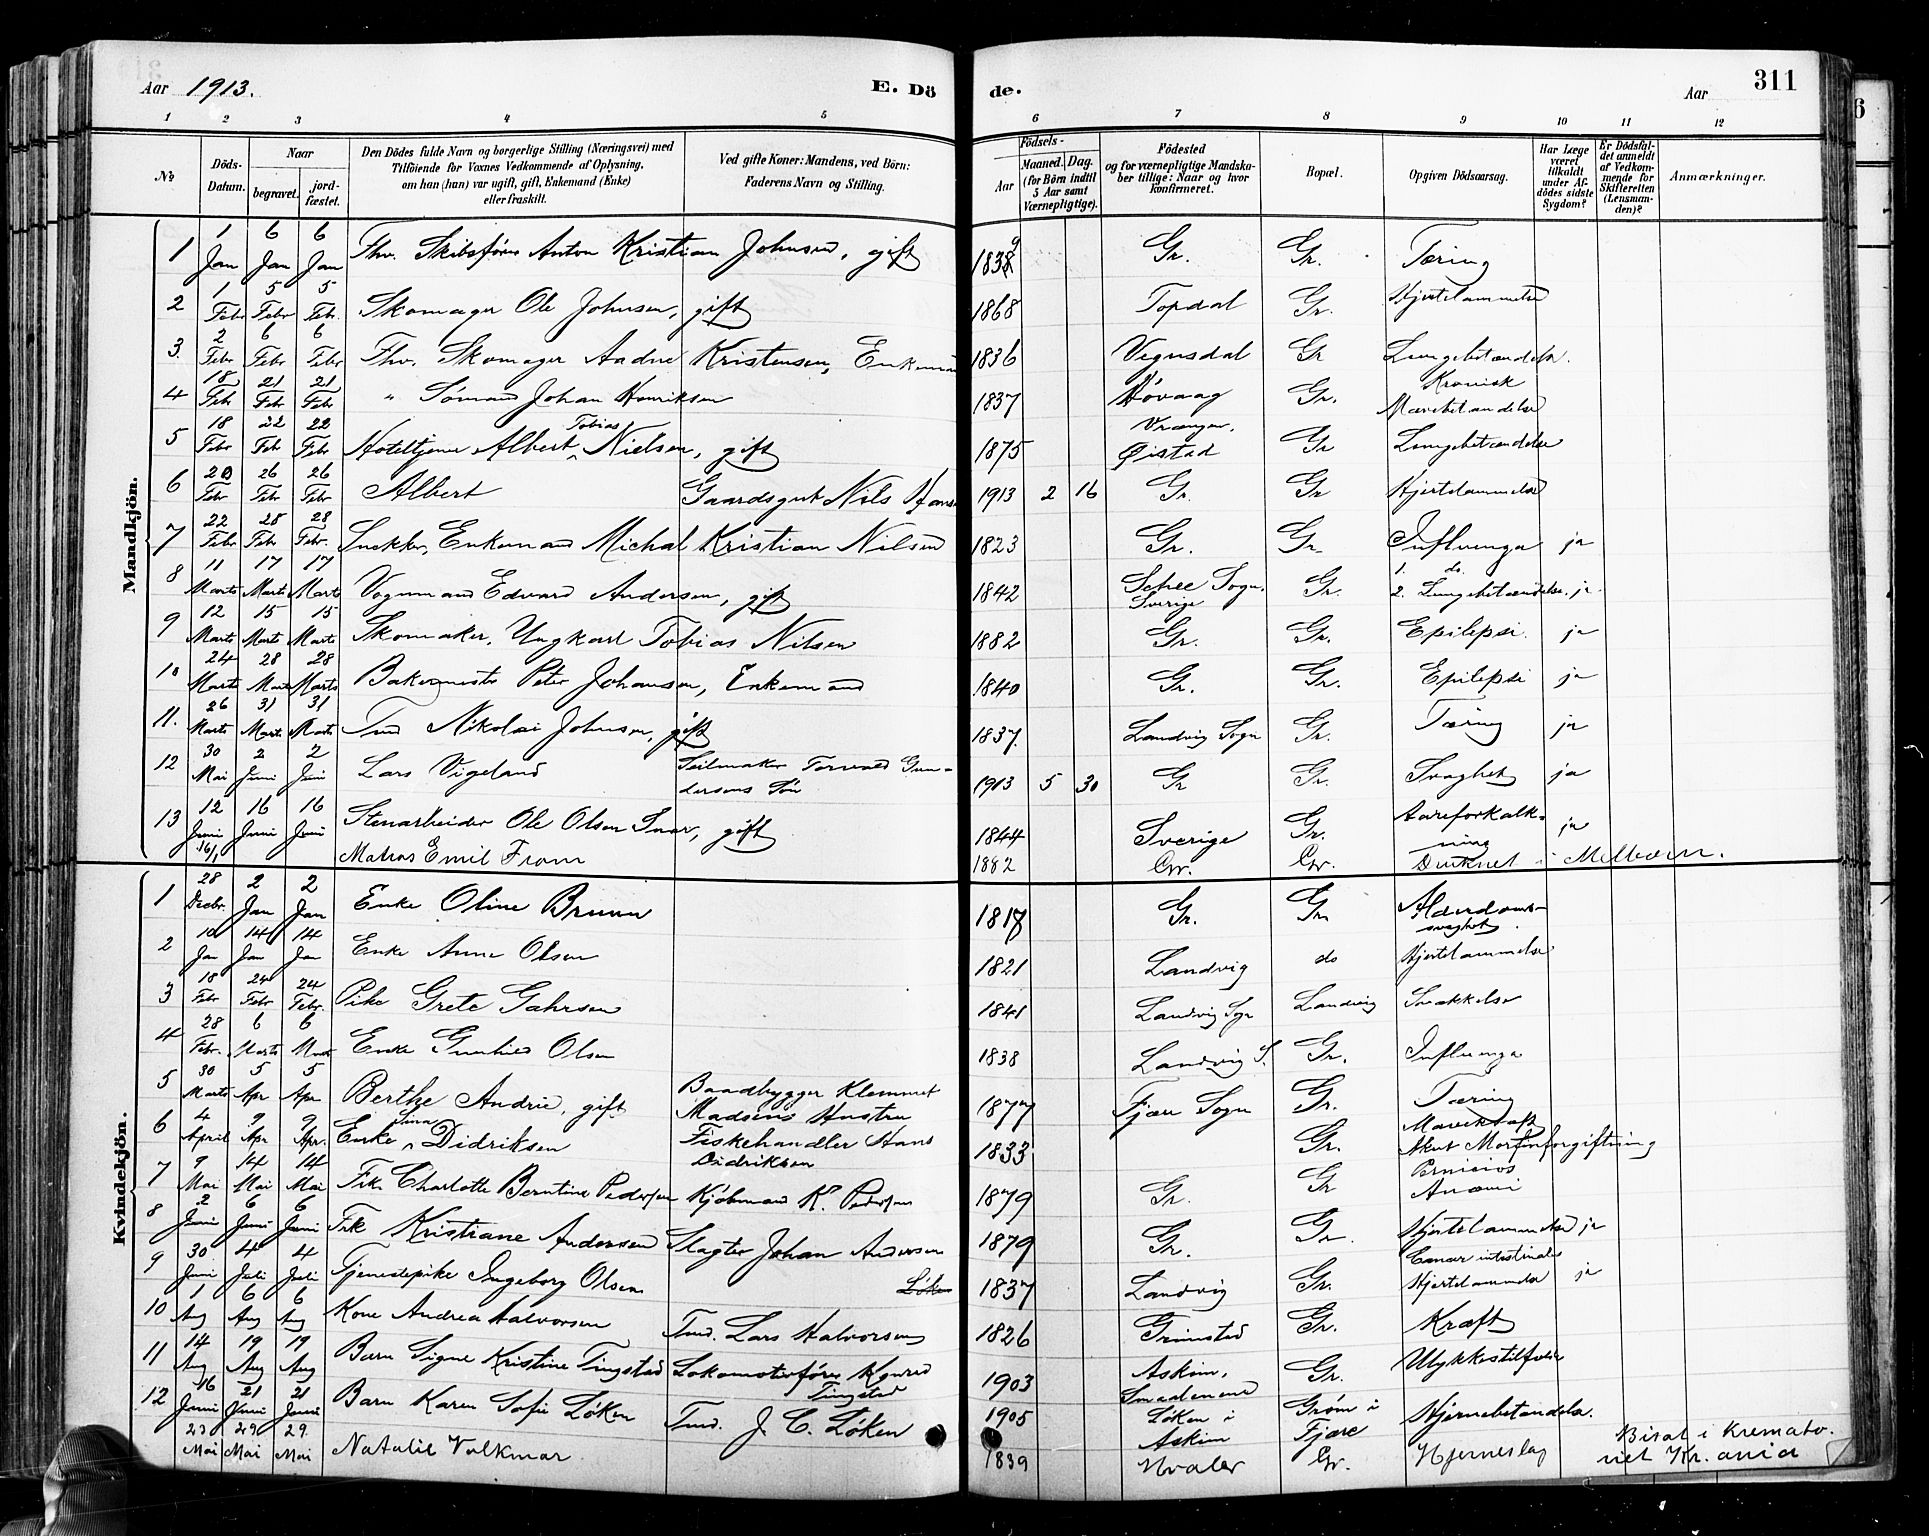 Aar 1913.
E. Dö
de.
Aar
311
1 2 3 4 5
6 7 8 9 10 11 12
No
Döds-Datum.
Naar
begravet.
jord-fæstet.
Den Dödes fulde Navn og borgerlige Stilling (Næringsvei) med
Tilföiende for Voxnes Vedkommende af Oplysning,
om han (hun) var ugift, gift, Enkemand (Enke)
eller fraskilt.
Ved gifte Koner: Mandens, ved Börn:
Faderens Navn og Stilling.
Födsels-
Aar
Maaned. Dag.
(for Börn indtil
5 Aar samt
Værnepligtige).
Födested
og for værnepligtige Mandska-
ber tillige: Naar og hvor
konfirmeret.
Bopæl.
Opgiven Dödsaarsag.
Har Læge
været
tilkaldt
under Af-
dödes sidste
Sygdom?
Er Dödsfal-
det anmeldt
af Vedkom-
mende for
Skifteretten
(Lensman-
den)?
Anmærkninger.
Mandkjön.
1 1 Jan 6 Jan 6 Jan Fhv. Skibsfører Anton Kristian Johnsen, gift 1839 Gr. Gr. Tæring
2 1 Febr 5 Febr 5 Febr. Skomager Ole Johnsen, gift 1868 Topdal Gr. Hjertelammelse
3. 2 Febr 6 Febr 6 Febr Fhv. Skomager Aadne Kristensen, Enkeman 1836 Vegusdal Gr Lungebetændelse.
4 18 Feb 21 Febr 21 Febr " Sømand Johan Henriksen 1837 Høvaag Gr. Kronisk Mavebetændelse
5 18 Febr 22 Feb 22 Febr Hoteltjener Albert Tobias Nielsen, gift 1875 Vrængen, Øistad Gr Lungebetændelse
6 20 Febr 26 Febr 26 Febr Albert Gaardsgut Nils Hans 1913 2 16 Gr. Gr Hjertelammelse
7 22 Febr 28 Febr 28 Febr. Snekker, Enkemand Michal Kristian Nilsen 1823 Gr. Gr. Influenza ja
8 11 Marts 17 Marts 17 Marts Vognmand Edvard Andersen, gift 1842 Schee Sogn. Sverige Gr. 1. do. 2. Lungebetændelse. ja.
9 12 Marts 15 Marts 15 Marts Skomaker, Ungkarl Tobias Nilsen 1882 Gr. Gr. Epilepsi. ja
10 24 Marts 28 Marts 28 Marts Bakermester Peter Johansen, Enkemand 1840 Gr. Gr. Epilepsi ja
11. 26 Marts 31 Marts 31 Marts Tmd Nikolai Johnsen, gift 1837. Landvig Sogn Gr. Tæring ja
12 30 Mai 2 Juni 2 Juni Lars Vigeland Seilmaker Torvald Gun-
dersens Søn 1913 5 30 Gr Gr. Svaghet ja
13 12 Juni 16 Juni 16 Juni Stenarbeider Ole Olsen Snar, gift 1844 Sverige Gr. Aareforkalk-
ning ja
16/1 Matros Emil From 1882 Gr. Gr. Druknet i Melbourn.
Kvindekjön.
1 28 Decbr. 2 Jan 2 Jan Enke Oline Bruun 1817 Gr. Gr. Alderdoms-
svaghet.
2 10 Jan 14 Jan 14 Jan Enke Anne Olsen 1821 Landvig do Hjertelammelse
3 18 Febr 24 Febr 24 Febr. Pike Grete Gahrsen 1841 Landvig Sogn Landvig
4 28 Febr. 6 Marts 6 Marts Enke Gunhild Olsen 1838 Landvig S. Gr. Influenza
5 30 Marts 5 Apr 5 Apr Berthe Andrie, gift Baadbygger Klemmet
Madsens Hustru 1877 Fjære Sogn Gr. Tæring
6 4 April 9 Apr 9 Apr. Enke Sina Didriksen Fiskehandler Hans
Didriksen 1833 Gr. Akut Morfinforgiftning
7 9 Mai 14 Mai 14 Mai Frk. Charlotte Berntine Pedersen Kjøbmand K. Pedersen 1879 Gr. Gr Perniciøs Anæmi
8 2 Juni 6 Juni 6 Juni Frk Kristiane Andersen Slagter Johan Andersen 1879 Gr. Gr. Hjertelammelse ja
9 30 Juni 4 Juli 4 Juli Tjenestepike Ingeborg Olsen Løken 1837 Landvig Gr. Cancer intestinalis
Hjertelammelse ja
10 1 Aug 6 Aug 6 Aug Kone Andrea Halvorsen Tmd. Lars Halvorsen 1826 Grimstad Gr. Kræft
11 14 Aug 19 Aug 19 Aug Barn Signe Kristine Tingstad Lokomotivfører Konrad
Tingstad 1903 Askim, Smaalenene Gr. Ulykkestilfælde
12 16 Juni 21 Juni 21 Juni Barn Karen Sofie Løken Tmd. J. C. Løken 1905 Løken i Askim Grøm i Fjære Hjernebetændelse.
23 Mai 29 Mai 29. Mai Natalie Volkmar 1839 Hvaler Gr. Hjerneslag Bisat i Kremato-
riet Kr.ania